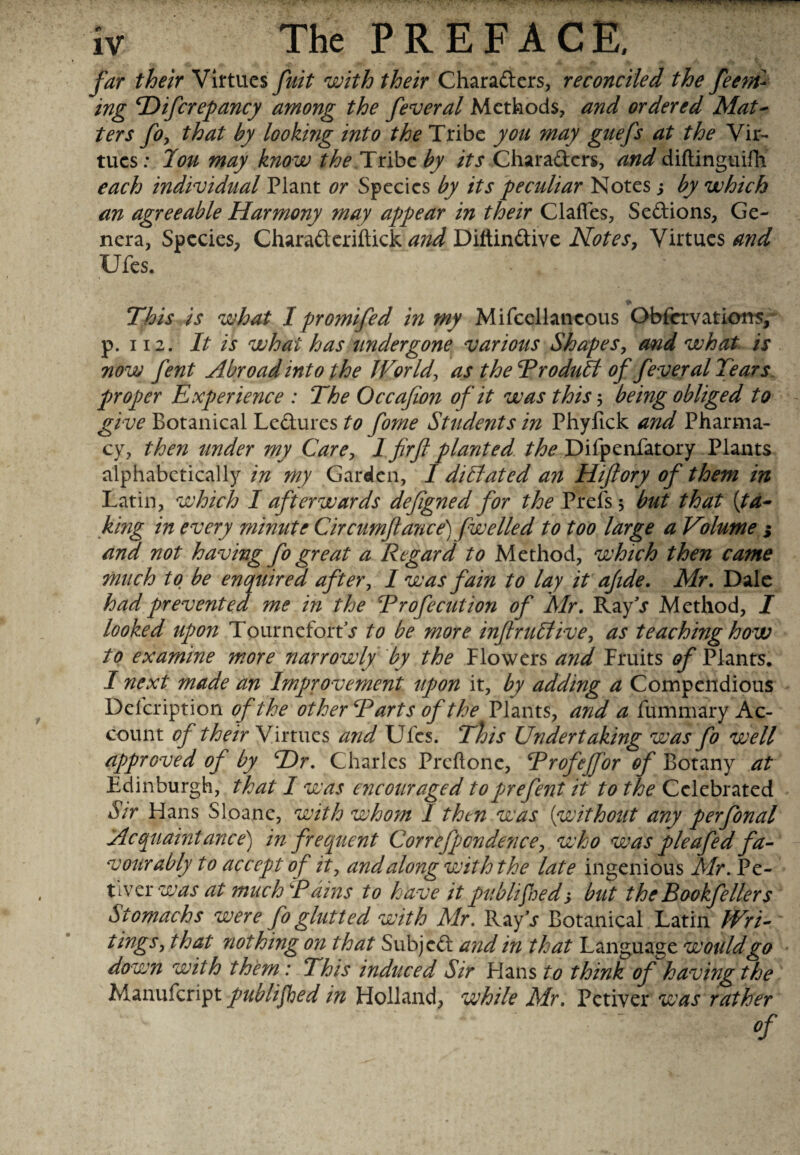 iv The PREFACE.
far their Virtues ſuit with their Characters, reconciled the ſeem-
ing Diſcrepancy among the ſeveral Methods, and ordered Mat-
ters ſo, that by looking into the Tribe you may gueſs at the Vir-
tues: You may know the Tribe by its Characters, and diſtinguiſh
each individual Plant or Species by its peculiar Notes; by which
an agreeable Harmony may appear in their Claſſes, Sections, Ge-
nera, Species, Characteriſtick and Diſtinctive Notes, Virtues and
Uſes.
This is what I promiſed in my Miſcellaneous Obſervations,
p. 112. It is what has undergone various Shapes, and what is
now ſent Abroad into the World, as the Product of ſeveral Years
proper Experience: The Occaſion of it was this; being obliged to
give Botanical Lectures to ſome Students in Phyſick and Pharma-
cy, then under my Care, I firſt planted the Diſpenſatory Plants
alphabetically in my Garden, I dictated an Hiſtory of them in
Latin, which I afterwards deſigned for the Preſs; but that (ta-
king in every minute Circumſtance) ſwelled to too large a Volume;
and not having ſo great a Regard to Method, which then came
much to be enquired after, I was fain to lay it aſide. Mr. Dale
had prevented me in the Proſecution of Mr. Ray's Method, I
looked upon Tournefort's to be more inſtructive, as teaching how
to examine more narrowly by the Flowers and Fruits of Plants.
I next made an Improvement upon it, by adding a Compendious
Deſcription of the other Parts of the Plants, and a ſummary Ac-
count of their Virtues and Uſes. This Undertaking was ſo well
approved of by Dr. Charles Preſtone, Profeſſor of Botany at
Edinburgh, that I was encouraged to preſent it to the Celebrated
Sir Hans Sloane, with whom I then was (without any perſonal
Acquaintance) in frequent Correſpondence, who was pleaſed fa-
vourably to accept of it, and along with the late ingenious Mr. Pe-
tiver was at much Pains to have it publiſhed; but the Bookſellers
Stomachs were ſo glutted with Mr. Ray's Botanical Latin Wri-
tings, that nothing on that Subject and in that Language would go
down with them: This induced Sir Hans to think of having the
Manuſcript publiſhed in Holland, while Mr. Petiver was rather
of